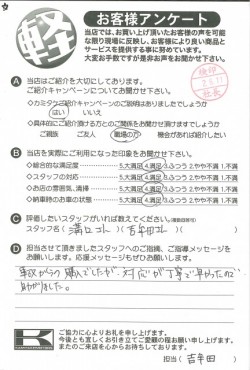 軽
お客様アンケート
当店では、お買い上げ頂いたお客様の声を可能
な限り現場に反映し、お客様により良い商品と
サービスを提供する事に努めています。
大変お手数ですが是非お声をお聞かせ下さい。
A 当店はご紹介を大切にしてあります。
ご紹介キャンペーンについてお聞かせ下さい。
・カミタケご紹介キャンペーンのご説明はありましたでしょうか
はい いいえ
・具体的にご紹介頂ける方とのご関係をお聞かせ願えますでしょうか
ご親族 ご友人 職場の方 機会があれば紹介したい
B 当店を実際にご利用になった印象をお聞かせ下さい。
◇総合的な満足度 5.大満足 4.満足 3.ふつう 2.やや不満 1.不満
◇スタッフの対応 5.大満足 4.満足 3.ふつう 2.やや不満 1.不満
◇お店の雰囲気、清掃 5.大満足 4.満足 3.ふつう 2.やや不満 1.不満
◇納車時のお車の状態 5.大満足 4.満足 3.ふつう 2.やや不満 1.不満
C 評価したいスタッフがいれば教えてください。(複数回答可)
スタッフ名( 溝口さん )( 吉牟田さん )
D 担当させて頂きましたスタッフへのご指摘、ご指導メッセージをお
願いします。応援メッセージもぜひお願いします。
事故からの購入でしたが、対応が丁寧で早かったので
助かりました。
ご協力に心よりお礼を申し上げます。
今後とも宜しくお引き立てご愛顧の程お願い申し上げます。
またのご来店を心からお待ちしております。
担当( 吉牟田 )